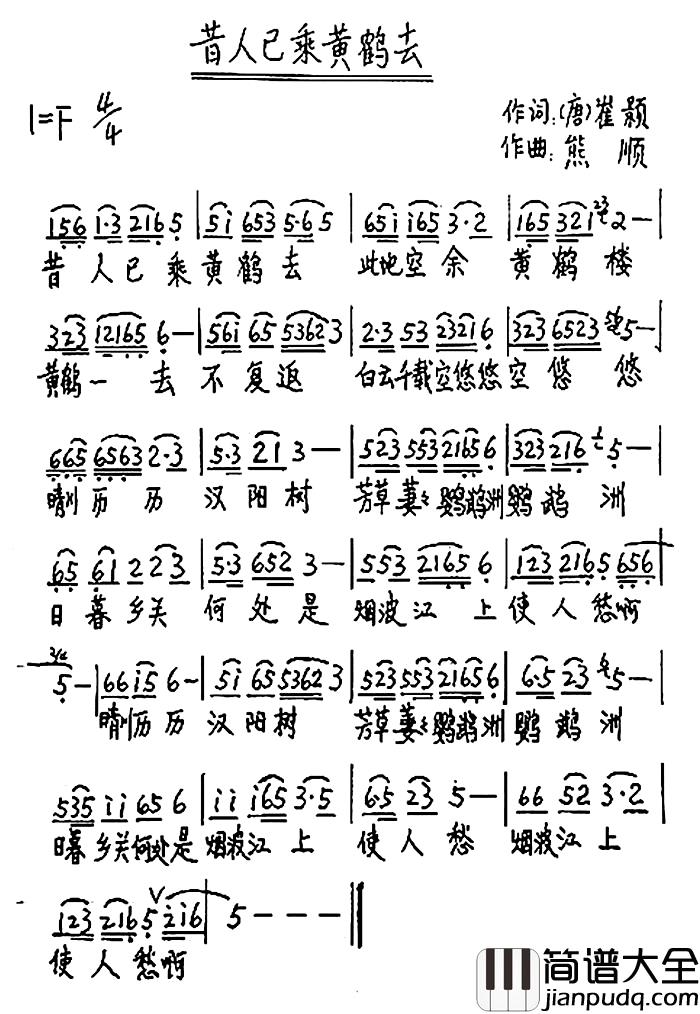 昔人已乘黄鹤去
1=F 4/4
作词:(唐)崔颢
作曲:熊 顺
156 1·3 216 5 | 5i 653 5·6 5 | 65i i65 3·2 | 165 321 23 2— |
昔人已乘黄鹤去 此地空余 黄鹤楼
323 12165 6— | 56i 65 5362 3 | 2·3 53 2321 6 | 323 6523 5— |
黄鹤一去不复返 白云千载空悠悠空悠悠
665 6563 2·3 | 5·3 21 3—— | 523 553 2165 6 | 323 216 1 5— |
晴川历历 汉阳树 芳草萋萋鹦鹉洲鹦鹉洲
65 61 2 23 | 5·3 652 3— | 553 2165 6 | 123 216 5 656 |
日暮乡关 何处是 烟波江上使人愁啊
2/4
5— | 66 i5 6— | 5i 65 5362 3 | 523 553 2165 6 | 6·5 23 5— |
晴川历历 汉阳树 芳草萋萋鹦鹉洲鹦鹉洲
535 ii 65 6 | ii i65 3·5 | 6·5 23 5— | 66 52 3·2 |
日暮乡关何处是 烟波江上 使人愁 烟波江上
V
123 216 5 2i6 | 5———‖
使人愁啊
简谱大全
jianpudq.com